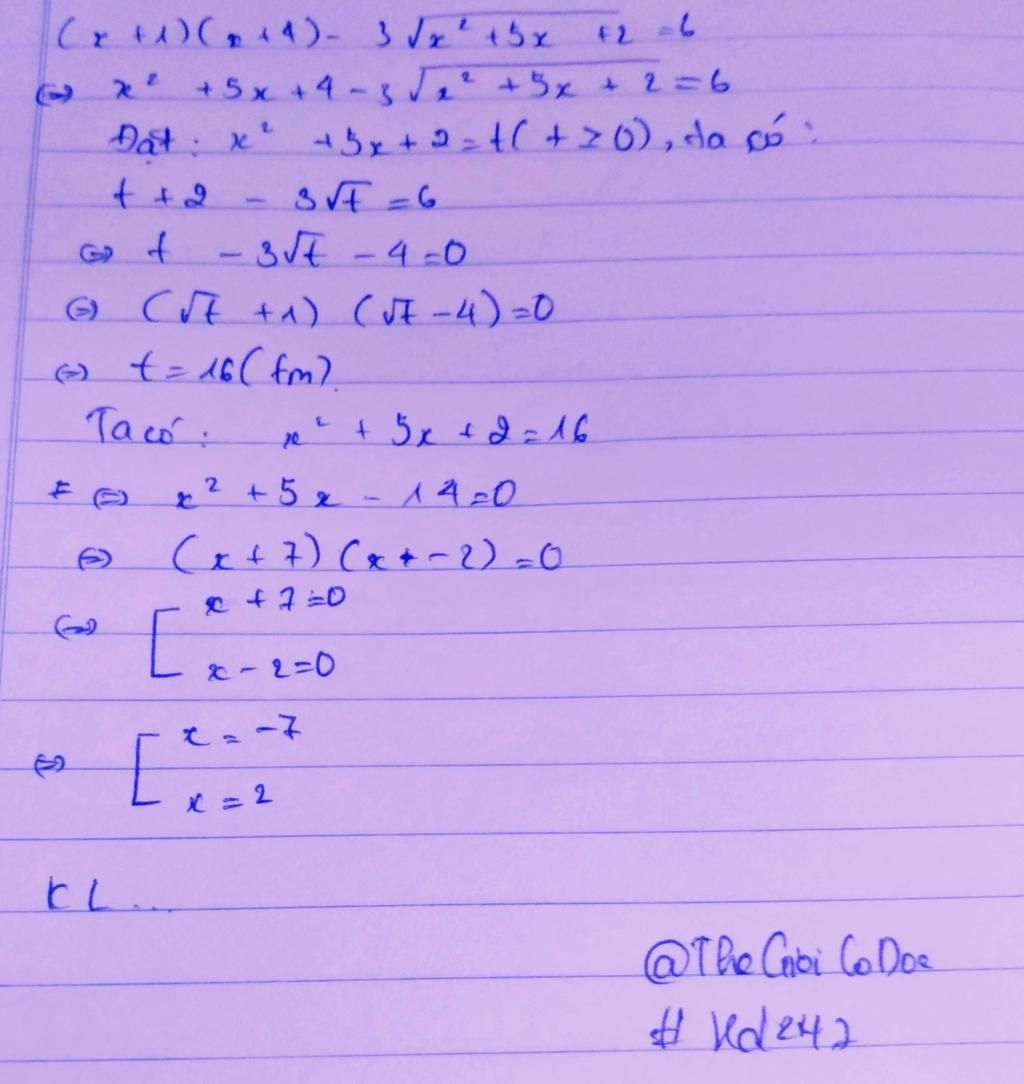 (x+1)(x+4) - 3√(x² + 5x + 2) = 6
(=) x² + 5x + 4 - 3√(x² + 5x + 2) = 6
Đặt: x² + 5x + 2 = t (t ≥ 0), ta có:
t + 2 - 3√t = 6
(=) t - 3√t - 4 = 0
(=) (√t + 1) (√t - 4) = 0
(=) t = 16 (tm)
Ta có: x² + 5x + 2 = 16
(=) x² + 5x - 14 = 0
(=) (x + 7) (x - 2) = 0
(=) [ x + 7 = 0
x - 2 = 0
(=) [ x = -7
x = 2
KL...